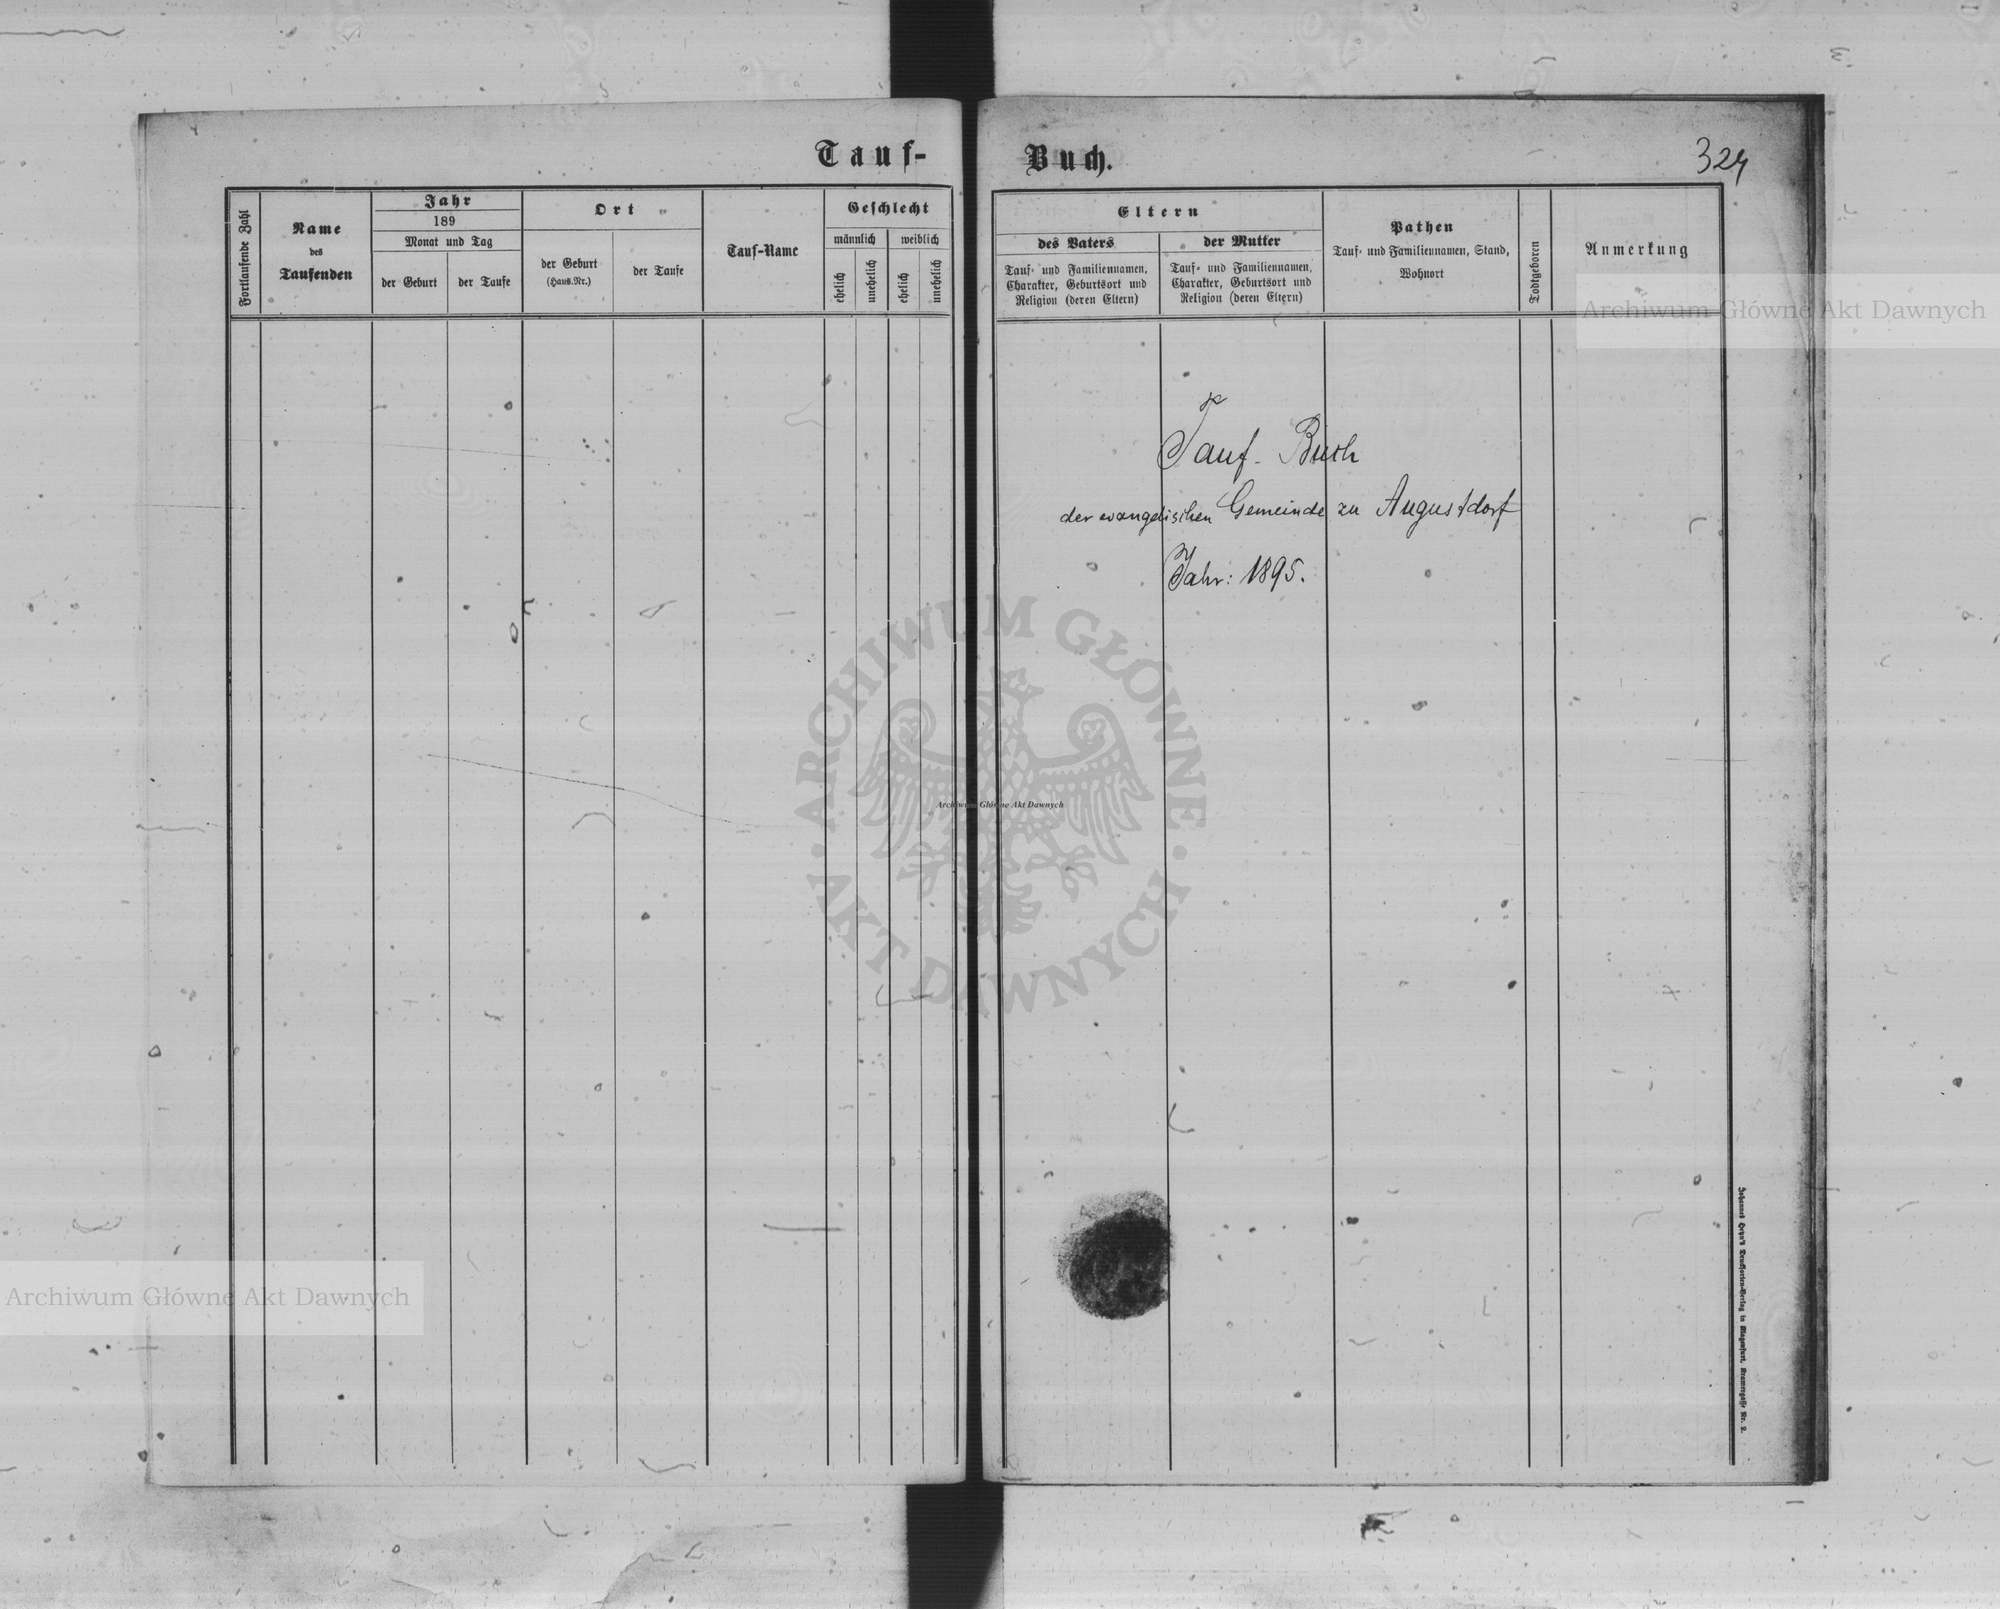 Tauf-
Buch.
324
Fortlaufende Zahl
Name
des
Taufenden
Jahr
189
Monat und Tag
der Geburt
der Taufe
Ort
der Geburt
(Haus-Nr.)
der Taufe
Tauf-Name
Geschlecht
männlich
weiblich
ehelich
unehelich
ehelich
unehelich
Eltern
des Vaters
Tauf- und Familiennamen,
Charakter, Geburtsort und
Religion (deren Eltern)
der Mutter
Tauf- und Familiennamen,
Charakter, Geburtsort und
Religion (deren Eltern)
Pathen
Tauf- und Familiennamen, Stand,
Wohnort
Todtgeboren
Anmerkung
Archiwum Główne Akt Dawnych
Tauf-Buch
der evangelischen Gemeinde zu Augustdorf
Jahr: 1895.
ARCHIWUM GŁÓWNE
AKT DAWNYCH
Archiwum Główne Akt Dawnych
Archiwum Główne Akt Dawnych
Johannes Heyn's Drucksorten-Verlag in Klagenfurt, Kramergasse Nr. 2.